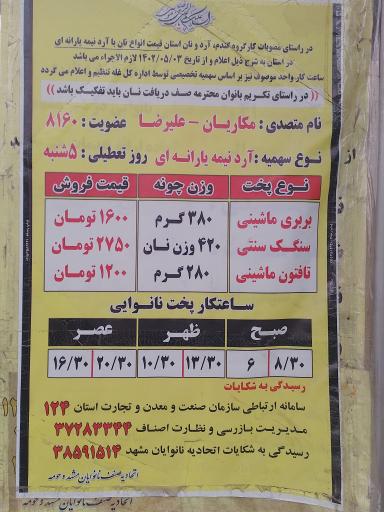 در راستای مصوبات کارگروه گندم، آرد و نان استان قیمت انواع نان با آرد نیمه یارانه ای
در استان به شرح ذیل اعلام و از تاریخ ۱۴۰۲/۰۵/۰۳ لازم الاجراء می باشد
ساعت کار واحد موصوف نیز بر اساس سهمیه تخصیصی توسط اداره کل غله تنظیم و اعلام می گردد
(( در راستای تکریم بانوان محترمه صف دریافت نان باید تفکیک باشد ))
نام متصدی: مکاریان - علیرضا عضویت: ۸۱۶۰
نوع سهمیه: آرد نیمه یارانه ای روز تعطیلی: ۵شنبه
نوع پخت وزن چونه قیمت فروش
بربری ماشینی ۳۸۰ گرم ۱۶۰۰ تومان
سنگک سنتی ۴۲۰ وزن نان ۲۷۵۰ تومان
تافتون ماشینی ۲۸۰ گرم ۱۲۰۰ تومان
ساعتکار پخت نانوایی
صبح ظهر عصر
۸/۳۰ ۶ ۱۳/۳۰ ۱۰/۳۰ ۲۰/۳۰ ۱۶/۳۰
رسیدگی به شکایات
سامانه ارتباطی سازمان صنعت و معدن و تجارت استان ۱۲۴
مدیریت بازرسی و نظارت اصناف ۳۷۲۸۳۳۴۴
رسیدگی به شکایات اتحادیه نانوایان مشهد ۳۸۵۹۱۵۱۴
اتحادیه صنف نانوایان مشهد و حومه
اتحادیه صنف نانوایان مشهد و حومه